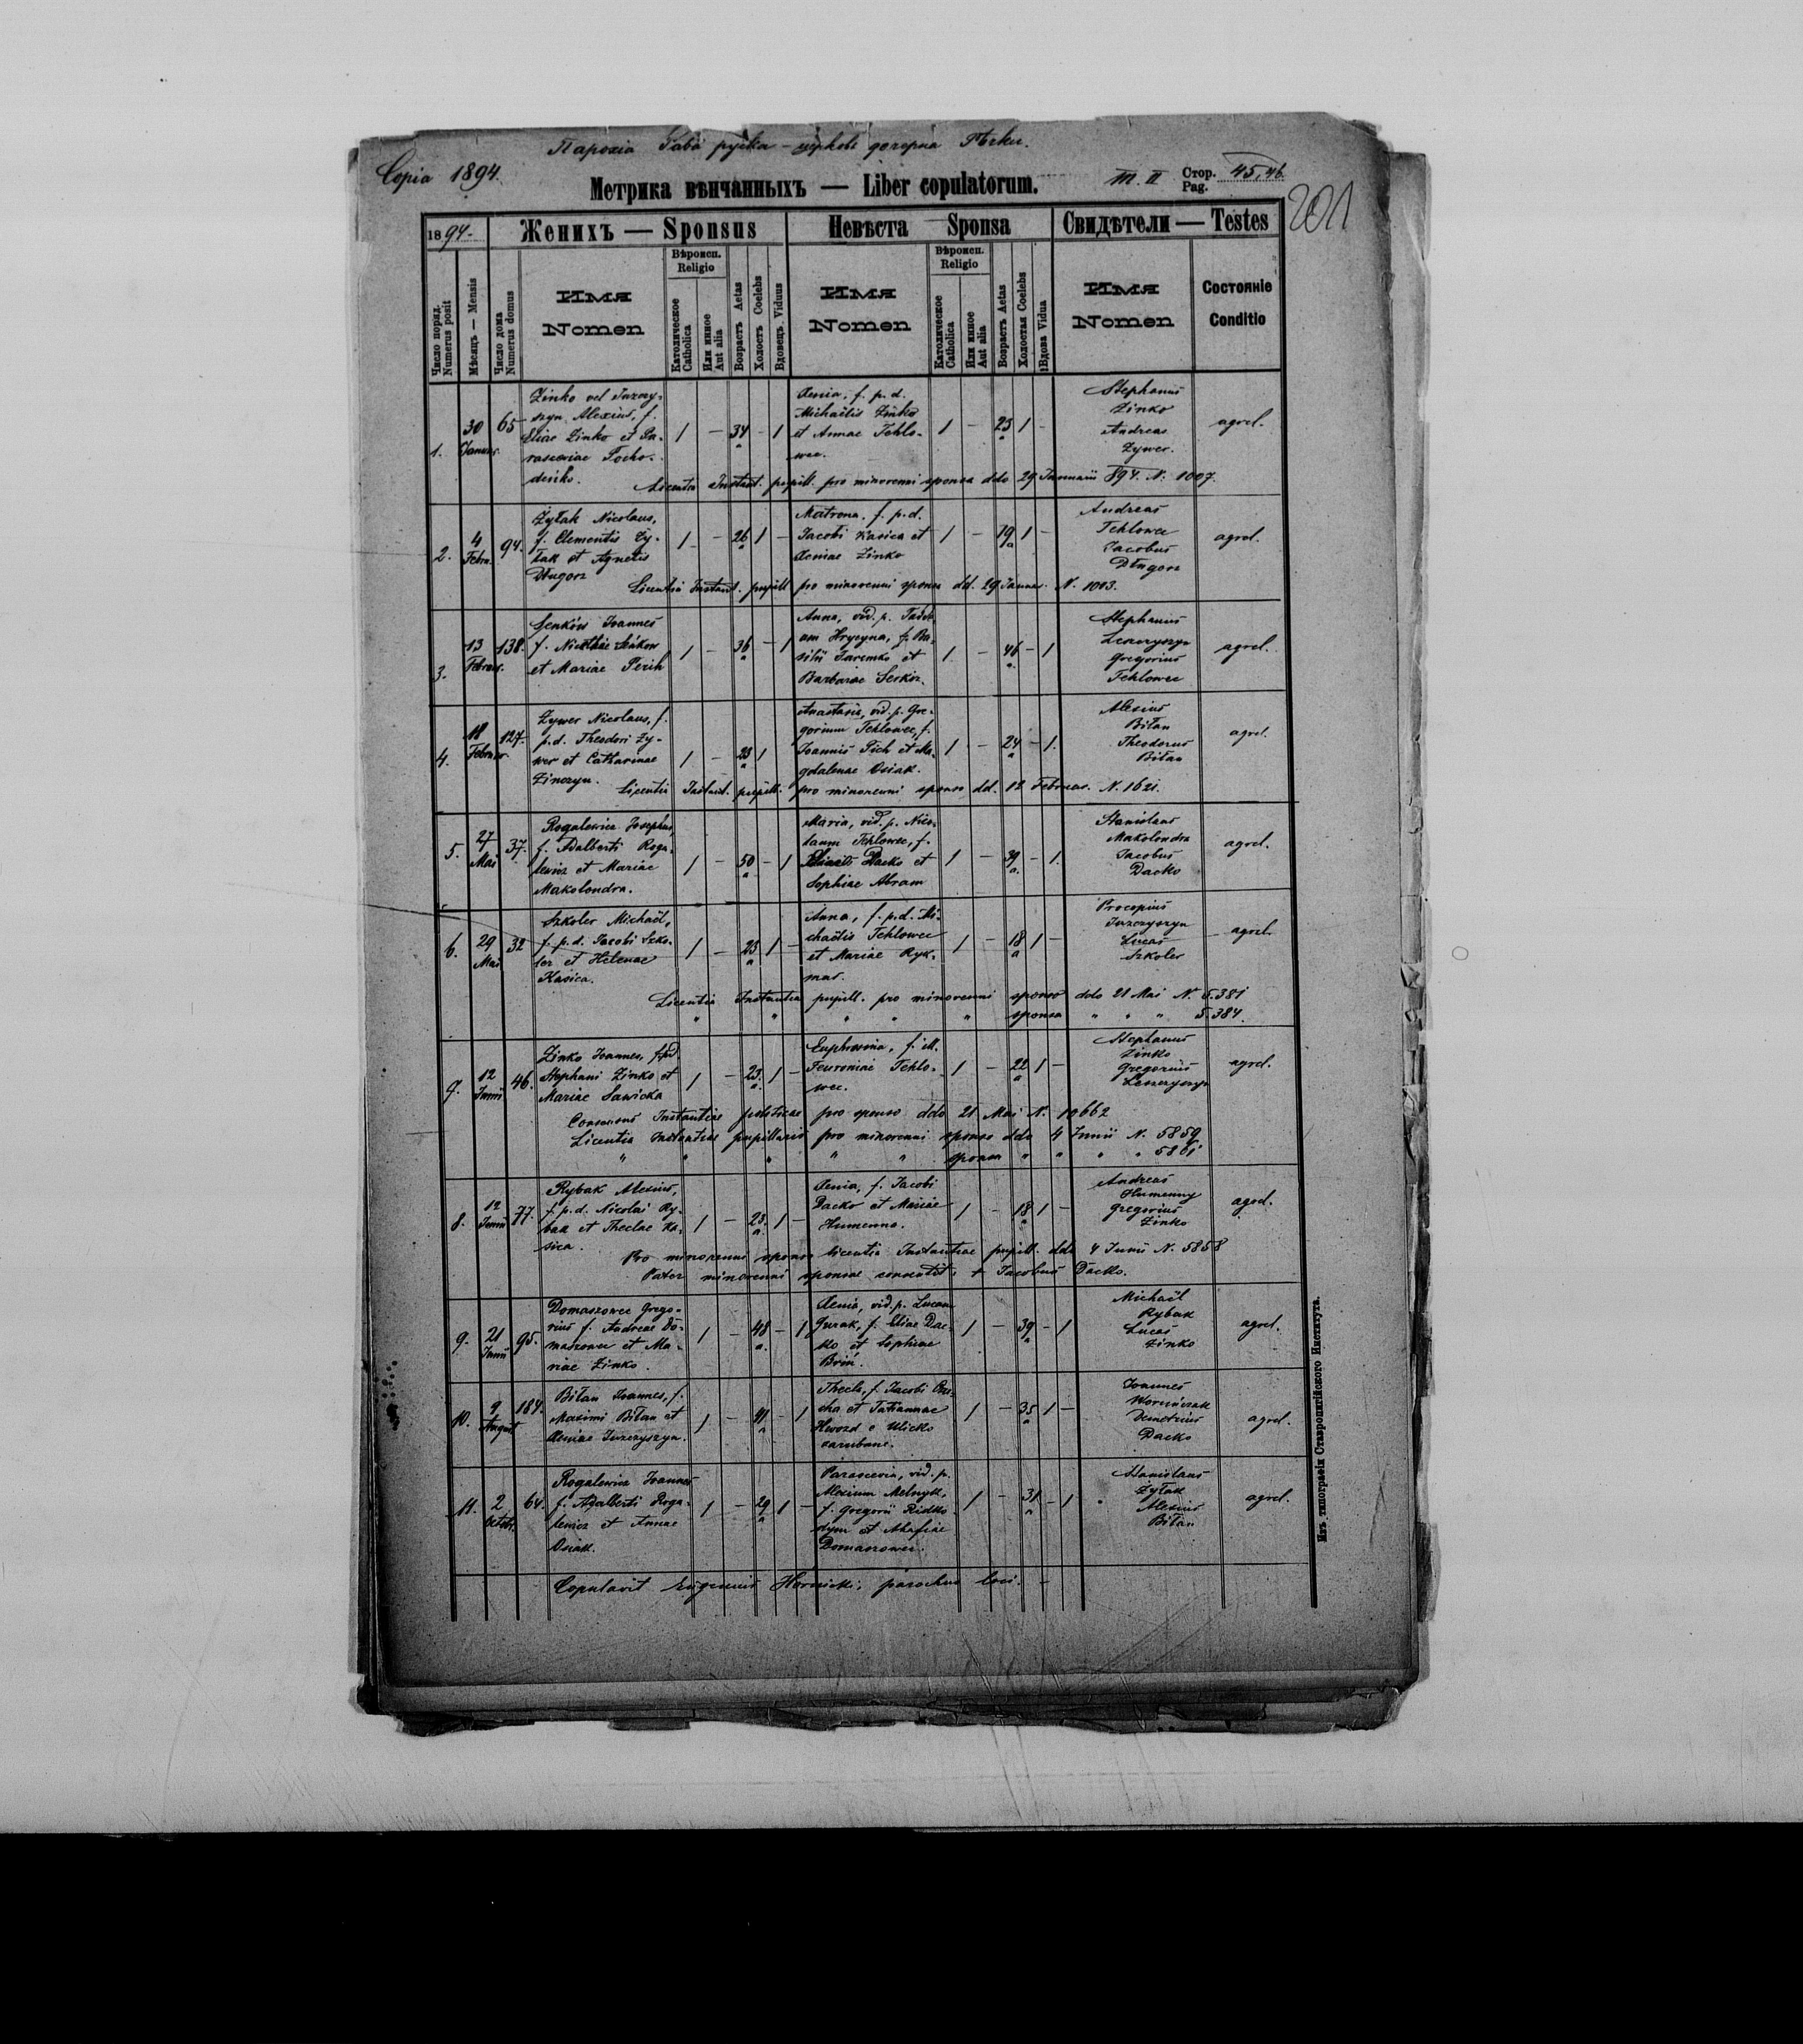 Парохія Рава руска - церковь дочерна Рѣчки.
Copia 1894.
Метрика вѣнчанныхъ — Liber copulatorum.
m. II Стор. Pag. 45, 46
201
1894.
Женихъ — Sponsus
Невѣста Sponsa
Свидѣтели — Testes
Число поряд. Numerus posit
Мѣсяцъ — Mensis
Число дома Numerus domus
Имя Nomen
Вѣроисп. Religio
Католическое Catholica
Или инное Aut alia
Возрастъ Aetas
Холостъ Coelebs
Вдовецъ Viduus
Имя Nomen
Вѣроисп. Religio
Католическое Catholica
Или инное Aut alia
Возрастъ Aetas
Холостая Coelebs
Вдова Vidua
Имя Nomen
Состояніе Conditio
1. 30 Januar. 65
Zinko vel Juzczy-
szyn Alexius, f.
Eliae Zinko et Pa-
rasceviae
1 — 34 a — 1
Xenia, f. p. d.
Michaëlis Zinko
et Annae Tehlo-
wec.
1 — 23 a 1 —
Stephanus
Zinko
Andreas
Zywer.
agrel.
Licentia Instant. pupill. pro minorenni sponsa ddo 29 Januarii 894. N. 1007.
2. 4 Febru. 94.
Żyłak Nicolaus,
f. Clementis Ży-
łak et Agnetis
Długosz
1 — 26 a 1 —
Matrona, f. p. d.
Jacobi Kasica et
Xeniae Zinko
1 — 19 a 1 —
Andreas
Tehlowec
Jacobus
Długosz
agrel.
Licentia Instant. pupill pro minorenni sponsa dd. 29 Januar. N. 1003.
3. 13 Februar. 138.
Senków Joannes
f. Senkow
et Mariae
1 — 36 a — 1
Anna, vid. p.
Hrycyna, f. Ba-
silii Jaremko et
Barbarae
1 — 46 a. — 1
Stephanus
Leszczyszyn
Gregorius
Tehlowec
agrel.
4. 18 Februar. 127.
Zywer Nicolaus, f.
p. d. Theodori Zy-
wer et Catharinae
Zinczyn.
1 — 23 a 1
Anastasia, vid. p. Gre-
gorium Tehlowec, f.
Joannis Pich et Ma-
gdalenae Osiak.
1 — 24 a — 1.
Alexius
Biłan
Theodorus
Biłan
agrel.
Licentia Instant. pupill. pro minorenni sponso dd. 12 Februar. N. 1621.
5. 27 Mai 37.
Rogalewicz Josephus,
f. Adalberti Roga-
lewicz et Mariae
Makolondra.
1 — 50 a — 1
Maria, vid. p. Nico-
laum Tehlowec, f.
Dacko et
Sophiae Abram
1 — 39 a. — 1.
Stanislaus
Makolondra
Jacobus
Dacko
agrel.
6. 29 Mai 32
Szkoler Michaël,
f. p. d. Jacobi Szko-
ler et Helenae
Kasica.
1 — 23 a 1 —
Anna, f. p. d. Mi-
chaëlis Tehlowec
et Mariae Ryk-
mas.
1 — 18 a 1 —
Procopius
Juzczyszyn
Lucas
Szkoler
agrel.
Licentia Instantia pupill. pro minorenni sponso ddo 21 Mai N. 5.381
" " " " " sponsa " " " 5.384.
7. 12 Junii 46.
Zinko Joannes, f. p. d.
Stephani Zinko et
Mariae Sawicka
1 — 23. a. 1 —
Euphrosina, f. ill.
Fevroniae Tehlo-
wec.
1 — 22 a 1 —
Stephanus
Zinko
Gregorius
Leszczyszyn
agrel.
Consensus Instantiae politicae pro sponso ddo 21 Mai N. 10662
Licentia Instantiae pupillaris pro minorenni sponso ddo 4 Junii N. 5859
" " " " " sponsa " " " " 5861
8. 12 Junii 77.
Rybak Alexius,
f. p. d. Nicolai Ry-
bak et Theclae Ka-
sica.
1 — 23. a. 1 —
Xenia, f. Jacobi
Dacko et Mariae
Humenna.
1 — 18 a 1 —
Andreas
Humenny
Gregorius
Zinko
agrel.
Pro minorenni sponso licentia Instantiae pupill. ddo 4 Junii N. 5858
Pater minorenni sponsae consentit: + Jacobus Dacko.
9. 21 Junii 95.
Domaszowec Grego-
rius f. Andreae Do-
maszowec et Ma-
riae Zinko.
1 — 48 a. — 1
Xenia, vid. p. Lucam
Guzak, f. Eliae Dac-
ko et Sophiae
1 — 39 a — 1
Michaël
Rybak
Lucas
Zinko
agrel.
10. 9 August 184.
Biłan Joannes, f.
Maximi Biłan et
Xeniae Juzczyszyn.
1 — 41 a — 1
Thecla, f. Jacobi
et Tatiannae
Hwozd e Ulicko
zarubane.
1 — 35 a 1 —
Joannes
Demetrius
Dacko
agrel.
11. 2 Octobr. 64.
Rogalewicz Joannes
f. Adalberti Roga-
lewicz et Annae
Osiak.
1 — 29 a 1 —
Parascevia, vid. p.
Alexium Melnyk,
f. Gregorii
et Ahafiae
Domaszowec.
1 — 31 a — 1
Stanislaus
Żyłak
Alexius
Biłan
agrel.
Copulavit Eugenius Hornicki, parochus loci. —
Изъ типографіи Ставропигійского Института.